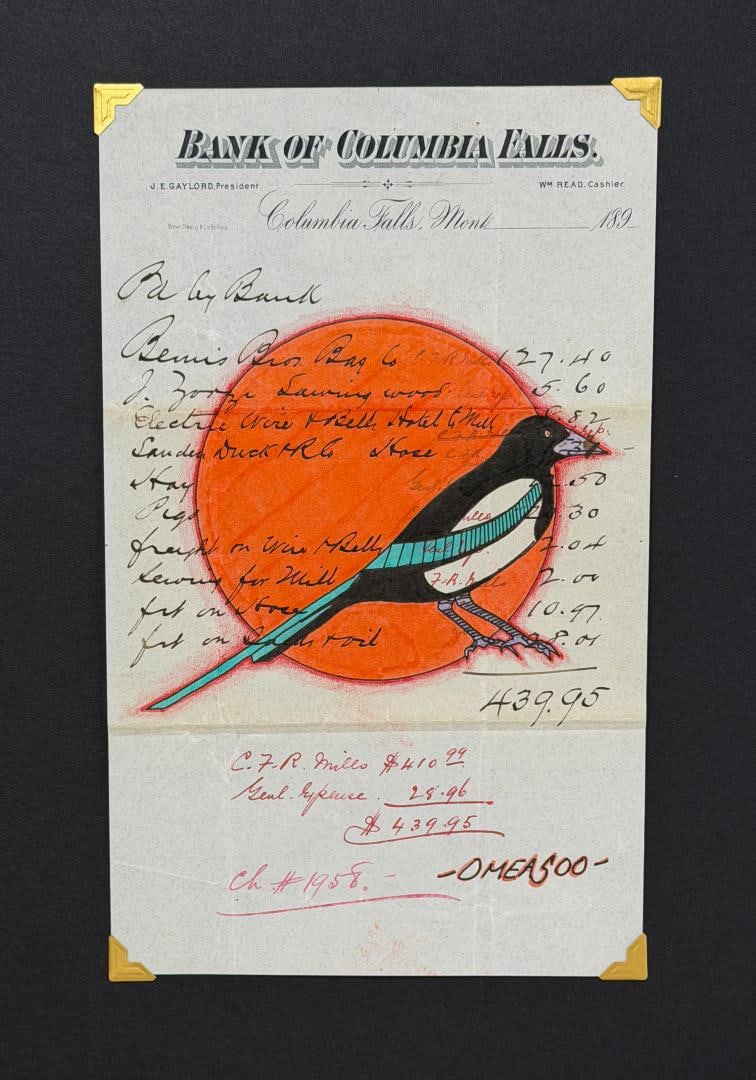 BANK OF COLUMBIA FALLS.
J. E. GAYLORD, President. WM READ, Cashier.
Columbia Falls, Mont. 189
Pd by Bank
Bemis Bros. Bag Co C.F.R. Mills 127.40
J. Sawing wood 5.60
Electric Wire & Bells Hotel & Mill 82
Duck & R Co Hose C.F.R.
Hay .50
Pigs Mills 30
freight on Wire & Bells 2.04
Sewing for Mill F.R. Mills 2.00
frt on Hose 10.97
frt on & oil 8.01
439.95
C.F.R. Mills $410 99
Genl. Expense. 28.96
$439.95
Ch. # 1958.-
-OMEASOO-